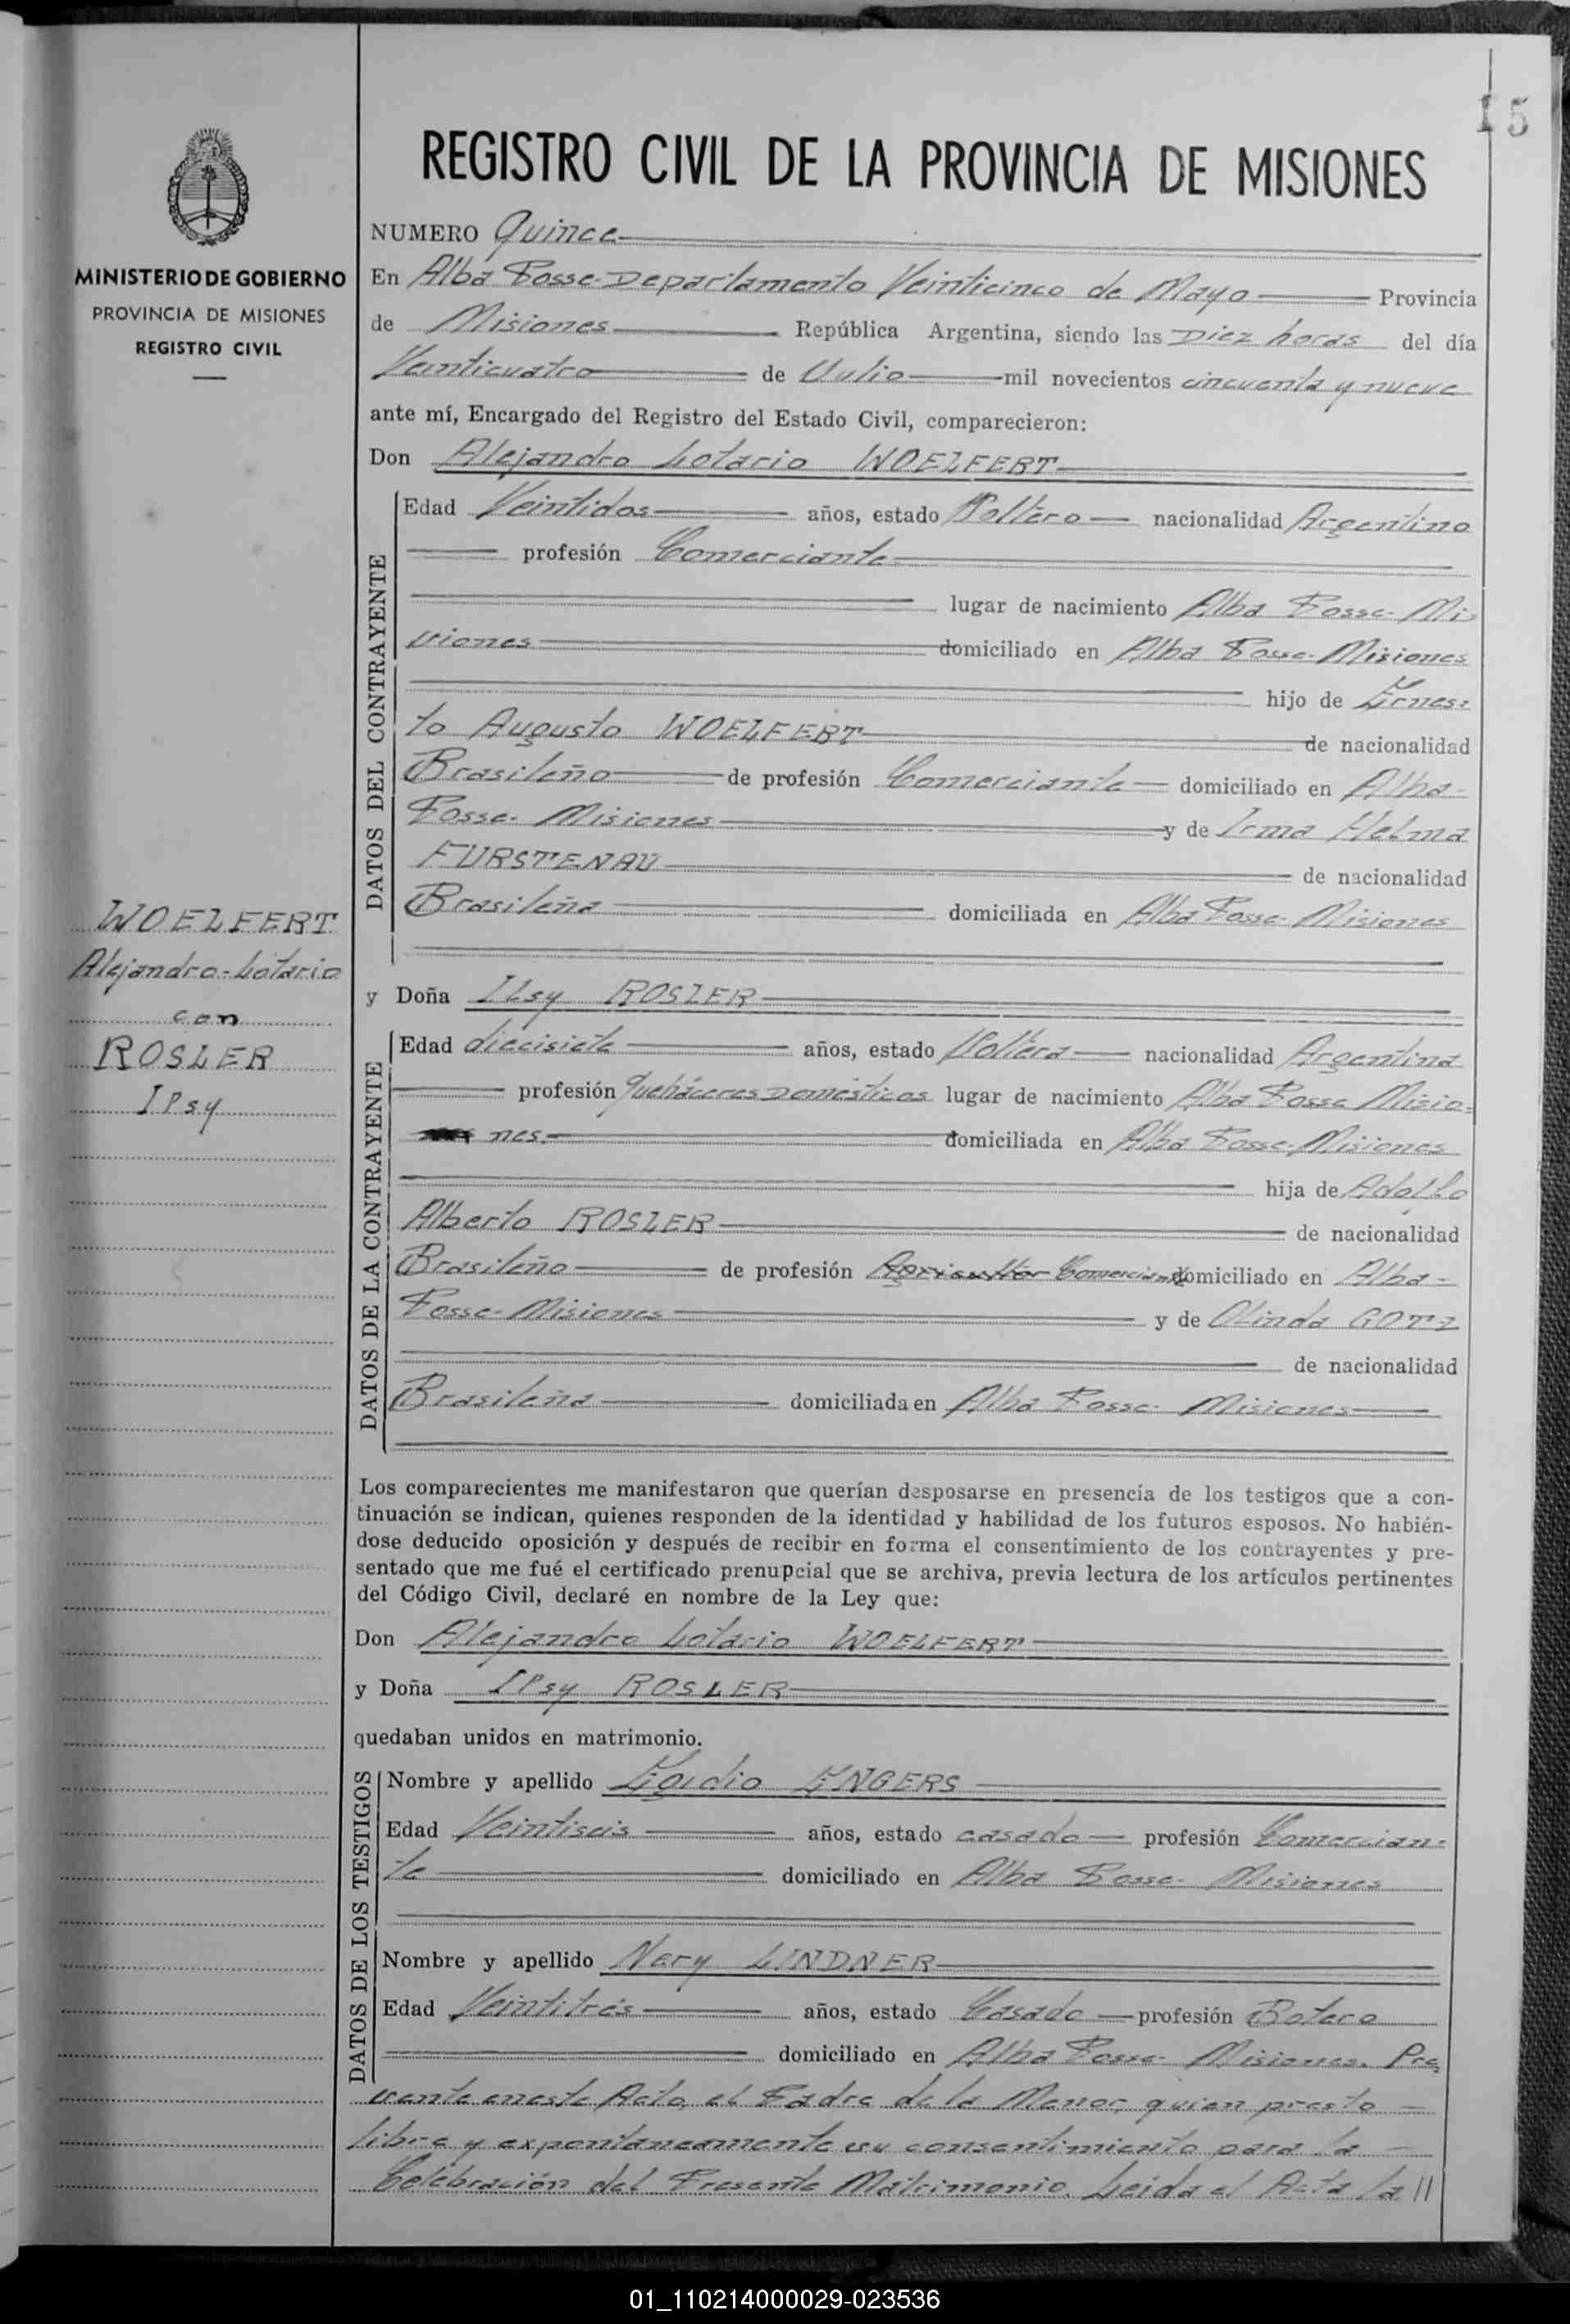 15
REGISTRO CIVIL DE LA PROVINCIA DE MISIONES
MINISTERIO DE GOBIERNO
PROVINCIA DE MISIONES
REGISTRO CIVIL
WOELFERT
Alejandro-Lotario
con
ROSLER
Ilsy
NUMERO Quince
En Alba Posse-Departamento Veinticinco de Mayo Provincia
de Misiones República Argentina, siendo las Diez horas del día
Veinticuatro de Julio mil novecientos cincuenta y nueve
ante mí, Encargado del Registro del Estado Civil, comparecieron:
Don Alejandro Lotario WOELFERT
DATOS DEL CONTRAYENTE
Edad Veintidos años, estado Soltero nacionalidad Argentino
profesión Comerciante
lugar de nacimiento Alba Posse-Mi
siones domiciliado en Alba Posse-Misiones
hijo de Ernes-
to Augusto WOELFERT de nacionalidad
Brasileño de profesión Comerciante domiciliado en Alba-
Posse-Misiones y de Irma Helma
FURSTENAU de nacionalidad
Brasileña domiciliada en Alba Posse-Misiones
y Doña Ilsy ROSLER
DATOS DE LA CONTRAYENTE
Edad diecisiete años, estado Soltera nacionalidad Argentina
profesión Quehaceres Domésticos lugar de nacimiento Alba Posse Misio-
nes.- domiciliada en Alba Posse-Misiones
hija de Adolfo
Alberto ROSLER de nacionalidad
Brasileño de profesión Agricultor Comerciante domiciliado en Alba-
Posse-Misiones y de Olinda GOTZ
de nacionalidad
Brasileña domiciliada en Alba Posse-Misiones
Los comparecientes me manifestaron que querían desposarse en presencia de los testigos que a con-
tinuación se indican, quienes responden de la identidad y habilidad de los futuros esposos. No habién-
dose deducido oposición y después de recibir en forma el consentimiento de los contrayentes y pre-
sentado que me fué el certificado prenupcial que se archiva, previa lectura de los artículos pertinentes
del Código Civil, declaré en nombre de la Ley que:
Don Alejandro Lotario WOELFERT
y Doña Ilsy ROSLER
quedaban unidos en matrimonio.
DATOS DE LOS TESTIGOS
Nombre y apellido Egidio ENGERS
Edad Veintiseis años, estado casado profesión Comercian-
te domiciliado en Alba Posse-Misiones
Nombre y apellido Nery LINDNER
Edad Veintitrés años, estado Casado profesión Botero
domiciliado en Alba Posse-Misiones. Pre
sente eneste Acto, el Padre de la Menor, quien presto
libre y expontaneamente su consentimiento para la
Celebración del Presente Matrimonio. Leida el Acta la //
01_110214000029-023536